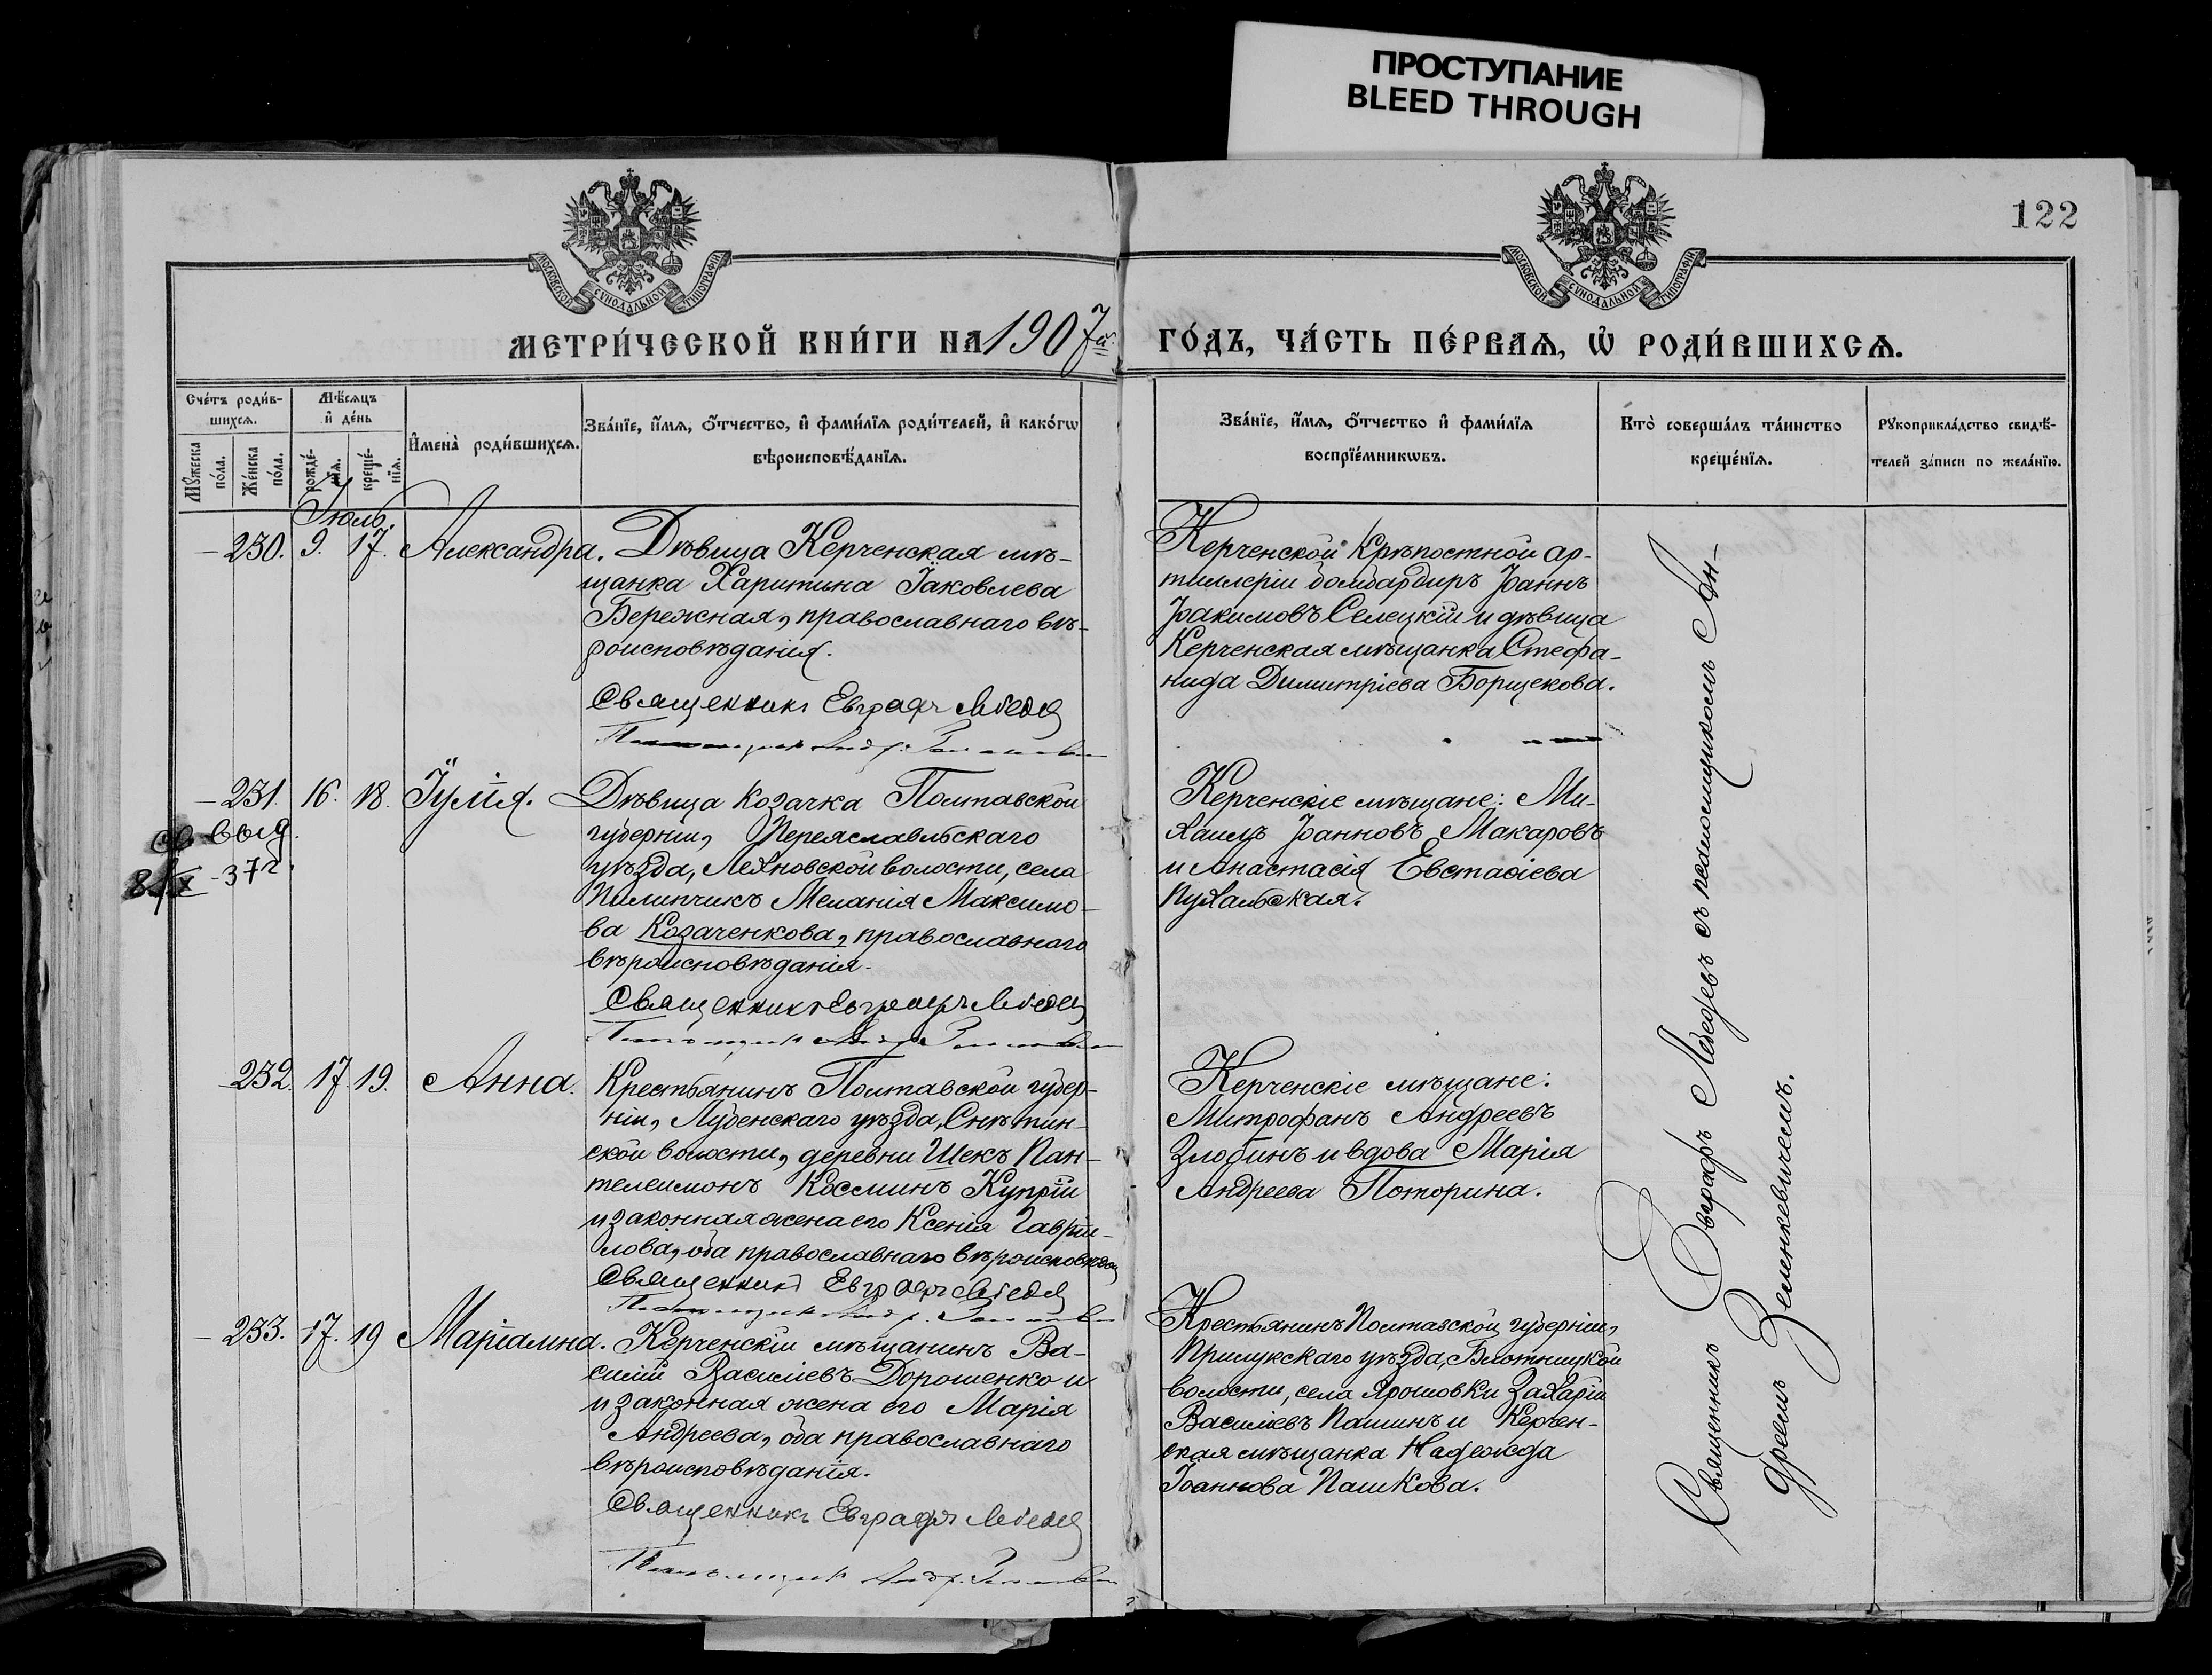 ПРОСТУПАНИЕ
BLEED THROUGH
122
МОСКОВСКОЙ СѴНОДАЛЬНОЙ ТИПОГРАФІИ
МОСКОВСКОЙ СѴНОДАЛЬНОЙ ТИПОГРАФІИ
МЕТРИ́ЧЕСКОЙ КНИ́ГИ НА 1907й
ГО́ДЪ, ЧА́СТЬ ПЕ́РВАѦ, Ѡ҆ РОДИ́ВШИХСѦ.
Сче́тъ роди́в-
шихсѧ.
Мꙋ́жеска по́ла.
Же́нска по́ла.
Мѣ́сѧцъ
и҆ де́нь
рожде́-нїѧ.
креще́-нїѧ.
И҆мена̀ роди́вшихсѧ.
Зва́нїе, и҆́мѧ, ѻ҆́тчество, и҆ фами́лїѧ роди́телей, и҆ како́гѡ
вѣроисповѣ́данїѧ.
Зва́нїе, и҆́мѧ, ѻ҆́тчество и҆ фами́лїѧ
воспрїе́мникѡвъ.
Кто̀ соверша́лъ та́инство
креще́нїѧ.
Рꙋкоприкла́дство свидѣ́-
телей за́писи по жела́нїю.
Іюль.
— 230. 9. 17. Александра. Дѣвица Керченская мѣ-
щанка Харитина Іаковлева
Бережная, православнаго вѣ-
роисповѣданія.
Священникъ Евграфъ Лебедев
Керченской Крѣпостной ар-
тиллеріи бомбардиръ Іоаннъ
Іоакимовъ Селецкій и дѣвица
Керченская мѣщанка Стефа-
нида Димитріева Борщекова.
— 231. 16. 18. Іулія. Дѣвица козачка Полтавской
губерніи, Переяславльскаго
уѣзда, Леляновской волости, села
Пилипчикъ Меланія Максимо-
ва Козаченкова, православнаго
вѣроисповѣданія.
Священникъ Евграфъ Лебедев
св. выд.
8/IX-37г.
Керченскіе мѣщане: Ми-
хаилъ Іоанновъ Макаровъ
и Анастасія Евстафіева
Пухальская.
232. 17. 19. Анна. Крестьянинъ Полтавской губер-
ніи, Лубенскаго уѣзда, Снѣтин-
ской волости, деревни Шекъ Пан-
телеимонъ Косминъ Купрій
и законная жена его Ксенія Гавріи-
лова, оба православнаго вѣроисповѣдан.
Священникъ Евграфъ Лебедев
Керченскіе мѣщане:
Митрофанъ Андреевъ
Злобинъ и вдова Марія
Андреева Поторина.
— 233. 17. 19 Маріамна. Керченскій мѣщанинъ Ва-
силій Василіевъ Дорошенко и
и законная жена его Марія
Андреева, оба православнаго
вѣроисповѣданія.
Священникъ Евграфъ Лебедев
Крестьянинъ Полтавской губерніи,
Прилукскаго уѣзда, Блотницкой
волости, села Ярошовки Захарій
Василіевъ Пашинъ и Керчен-
ская мѣщанка Надежда
Іоаннова Пашкова.
Священникъ Евграфъ Лебедевъ съ псаломщикомъ Ан-
дреемъ Зеленкевичемъ.